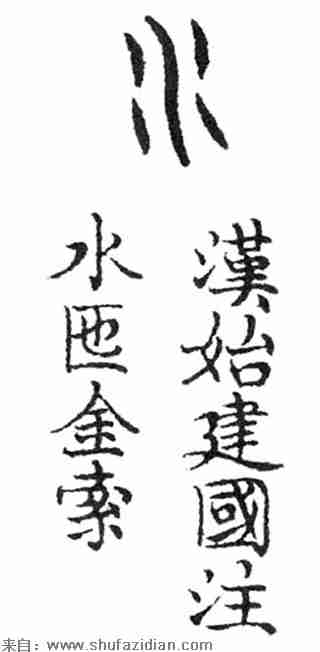 水
漢始建國注
水匜金索
来自：www.shufazidian.com